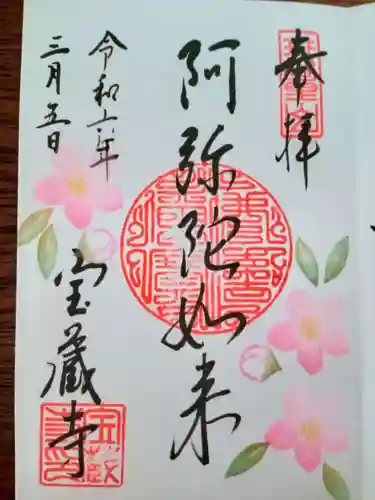 奉拝
阿弥陀如来
令和六年
三月五日
宝蔵寺